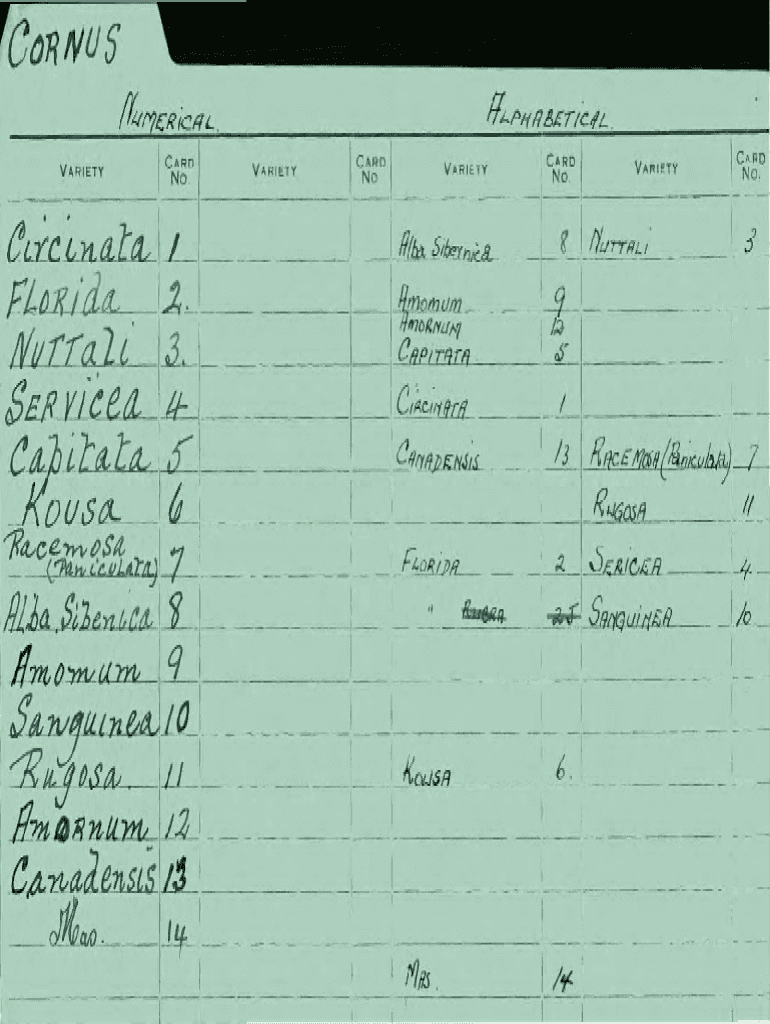 CORNUS
NUMERICAL. ALPHABETICAL.
VARIETY CARD NO. VARIETY CARD NO VARIETY CARD NO. VARIETY CARD NO.
Circinata 1 Alba Sibernica 8 NUTTALI 3
FLORida 2. Amomum 9
AMORNUM 12
NUTTali 3. CAPITATA 5
SERVicea 4 CIRCINATA 1
Capitata 5 CANADENSIS 13 RACEMOSA (Paniculata) 7
Kousa 6 RUGOSA 11
Racemosa
(Paniculata) 7 FLORIDA 2 SERICEA 4.
Alba Sibenica 8 " RUBRA 25 SANGUINEA 10
Amomum 9
Sanguinea 10
Rugosa. 11 KOUSA 6.
AmORNUM 12
Canadensis 13
Mas. 14
MAS. 14